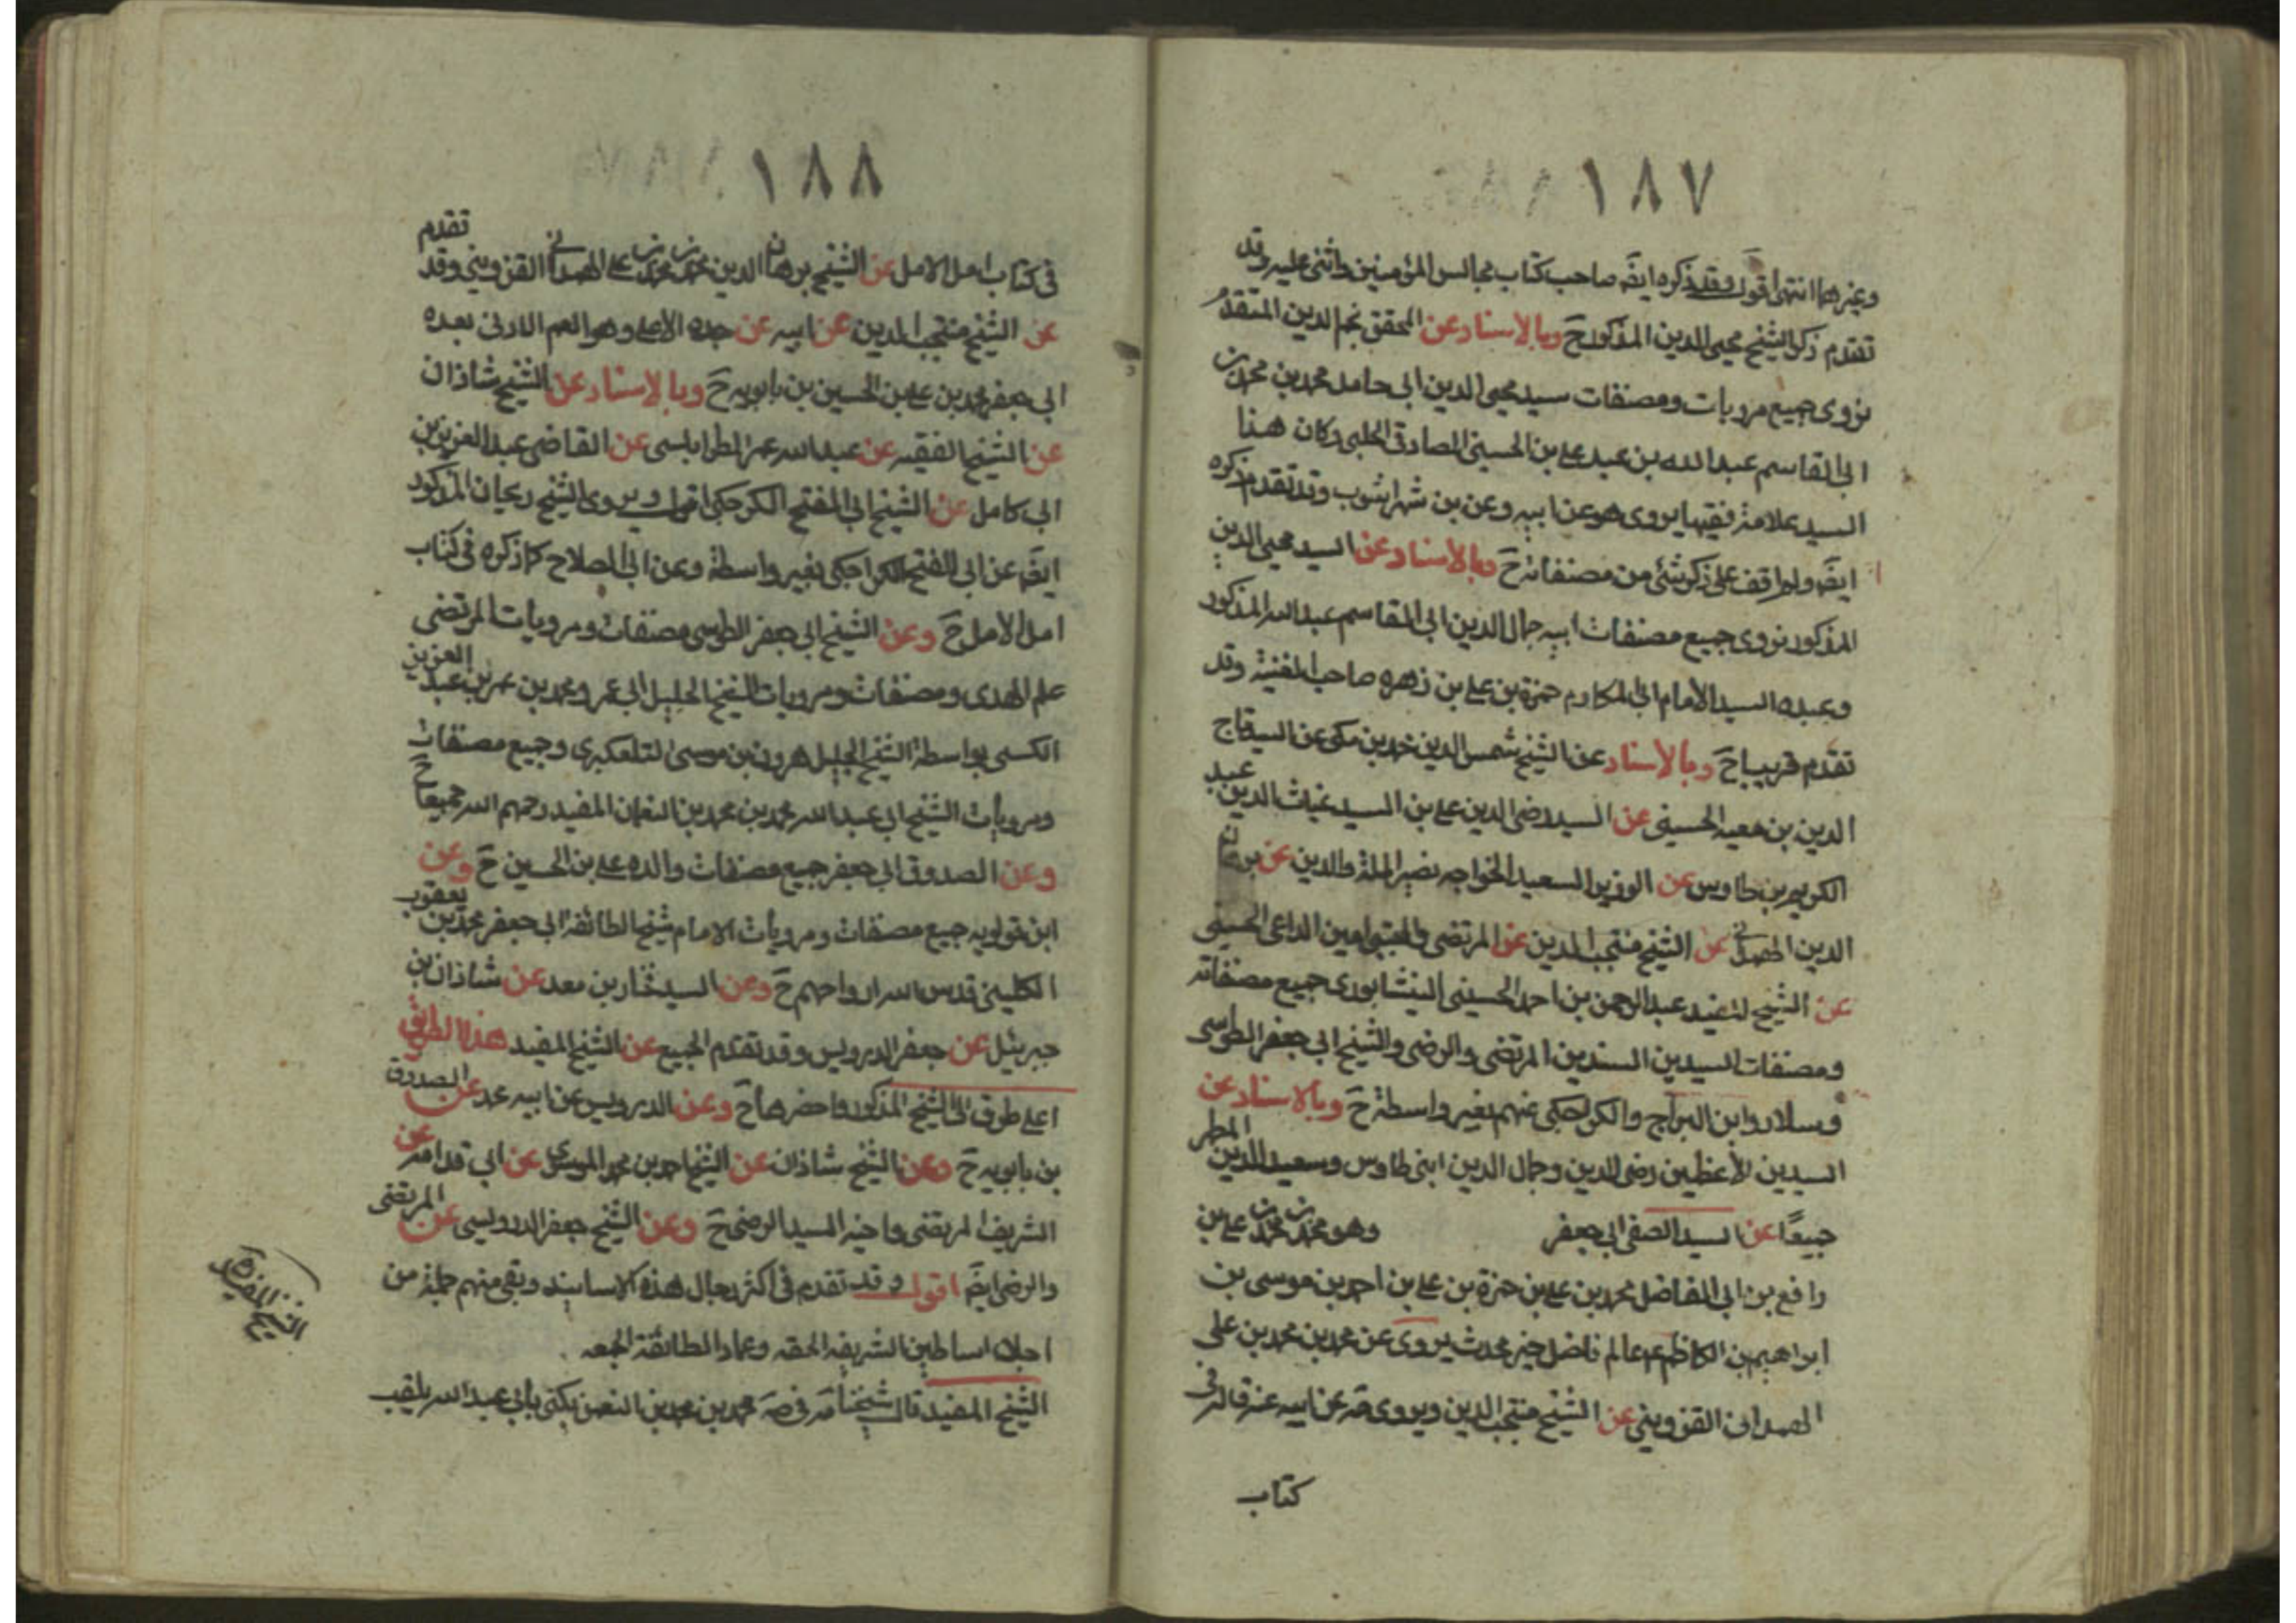 ١٨٧
وغيرهما انتهى اقول وقد ذكره ايضَ صاحب كتاب مجالس المؤمنين واثنى عليه وقد
تقدم ذكر الشيخ محيي الدين المذكور حَ وبالاسناد عن المحقق نجم الدين المتقدم
نروى جميع مرويات ومصنفات سيد محيى الدين ابى حامد محمد بن محمد بن
ابى القاسم عبد الله بن عبد على بن الحسينى الصادقى الحلبى وكان هذا
السيد علامة فقيها يروى هو عن ابيه وعن بن شهراشوب وقد تقدم ذكره
ايضَ ولم اقف على ذكر شئ من مصنفاته حَ وبالاسناد عن السيد محيى الدين
المذكور نروى جميع مصنفات ابيه جمال الدين ابى القاسم عبد الله المذكور
وعبده السيد الامام ابى المكارم حمزة بن على بن زهره صاحب الغنية وقد
تقدم قريبا حَ وبالاسناد عن الشيخ شمس الدين محمد بن مكى عن السيد تاج
الدين بن معيه الحسينى عن السيد رضى الدين على بن السيد غياث الدين عبد
الكريم بن طاوس عن الوزير السعيد الخواجه نصير الملة والدين عن برهان
الدين الهمدانى عن الشيخ منتجب الدين عن المرتضى والمجتبى امين الداعى الحسينى
عن الشيخ المفيد عبد الرحمن بن احمد الحسينى النيشابورى جميع مصنفاته
ومصنفات السيدين السندين المرتضى والرضى والشيخ ابى جعفر الطوسى
وسلار وابن البراج والكراجكى عنهم بغير واسطة حَ وبالاسناد عن
السيدين الأعظمين رضى الدين وجمال الدين ابنى طاوس وسعيد الدين المطهر
جميعًا عن السيد الصفى ابى جعفر وهو محمد بن محمد بن على بن
رافع بن ابى الفاضل محمد بن على بن حمزة بن على بن احمد بن موسى بن
ابراهيم بن الكاظم ع عالم فاضل خير محدث يروى عن محمد بن محمد بن على
الهمدانى القزوينى عن الشيخ منتجب الدين ويروى مَه عن ابيه عنه قاله فى
كتاب
١٨٨
فى كتاب امل الامل عن الشيخ برهان الدين محمد بن محمد بن على الهمدانى القزوينى وقد تقدم
عن الشيخ منتجب الدين عن ابيه عن جده الاعلى وهو العم الادنى بعده
ابى جعفر محمد بن على بن الحسين بن بابويه حَ وبالاسناد عن الشيخ شاذان
عن الشيخ الفقيه عن عبد الله عمر الطرابلسى عن القاضى عبد العزيز بن
ابى كامل عن الشيخ ابى الفتح الكراجكى اقول ويروى الشيخ ريحان المذكور
ايضَ عن ابى الفتح الكراجكى بغير واسطة وعن ابى الصلاح كما ذكره فى كتاب
امل الامل حَ وعن الشيخ ابى جعفر الطوسى مصنفات ومرويات المرتضى
علم الهدى ومصنفات ومرويات الشيخ الجليل ابى عمرو محمد بن عمر بن عبد العزيز
الكسى بواسطة الشيخ الجليل هرون بن موسى التلعكبرى وجميع مصنفات
ومرويات الشيخ ابى عبد الله محمد بن محمد بن النعمان المفيد رحمهم الله جميعا حَ
وعن الصدوق ابى جعفر جميع مصنفات والده على بن الحسين حَ وعن
ابن قولويه جميع مصنفات ومرويات الامام شيخ الطائفة ابى جعفر محمد بن يعقوب
الكلينى قدس الله ارواحهم حَ وعن السيد فخار بن معد عن شاذان بن
جبرئيل عن جعفر الدرويس وقد تقدم الجميع عن الشيخ المفيد هذا الطريق
اعلى طرق الى الشيخ المذكور واخصرها حَ وعن الدرويس عن ابيه محمد عن الصدوق
بن بابويه حَ وعن الشيخ شاذان عن الشيخ احمد بن محمد الموسوى عن ابى قدامه عن
الشريف المرتضى واخيه السيد الرضى حَ وعن الشيخ جعفر الدرويسى عن المرتضى
والرضى ايضَ اقول وقد تقدم فى اكثر رجال هذه الاسانيد وبقى منهم جملة من
اجلاء اساطين الشريفه الحقه وعماد الطائفة المحقه .
الشيخ المفيد قال شيخنا مَه فى صَه محمد بن محمد بن النعمن يكنى بأبى عبد الله يلقب
الشيخ المفيد ره